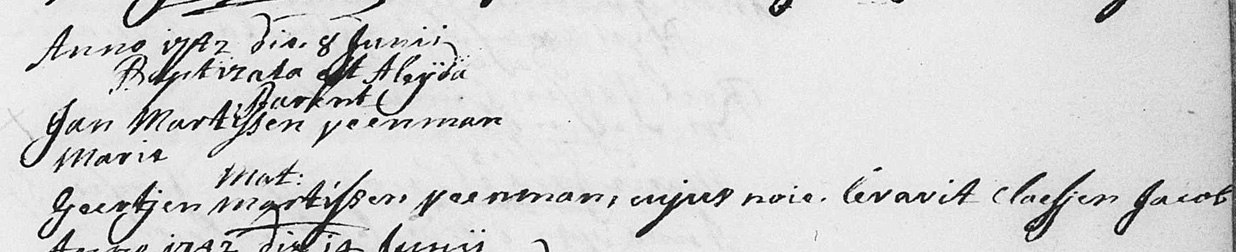 Anno 1742 die 8 Junii
Baptizata est Aleijda
Parent
Jan Martijssen veenman
Marie
Mat:
Geertjen martijssen veenman, cujus noie. levavit claesjen Jacob
Anno 1742 die 14 Junii